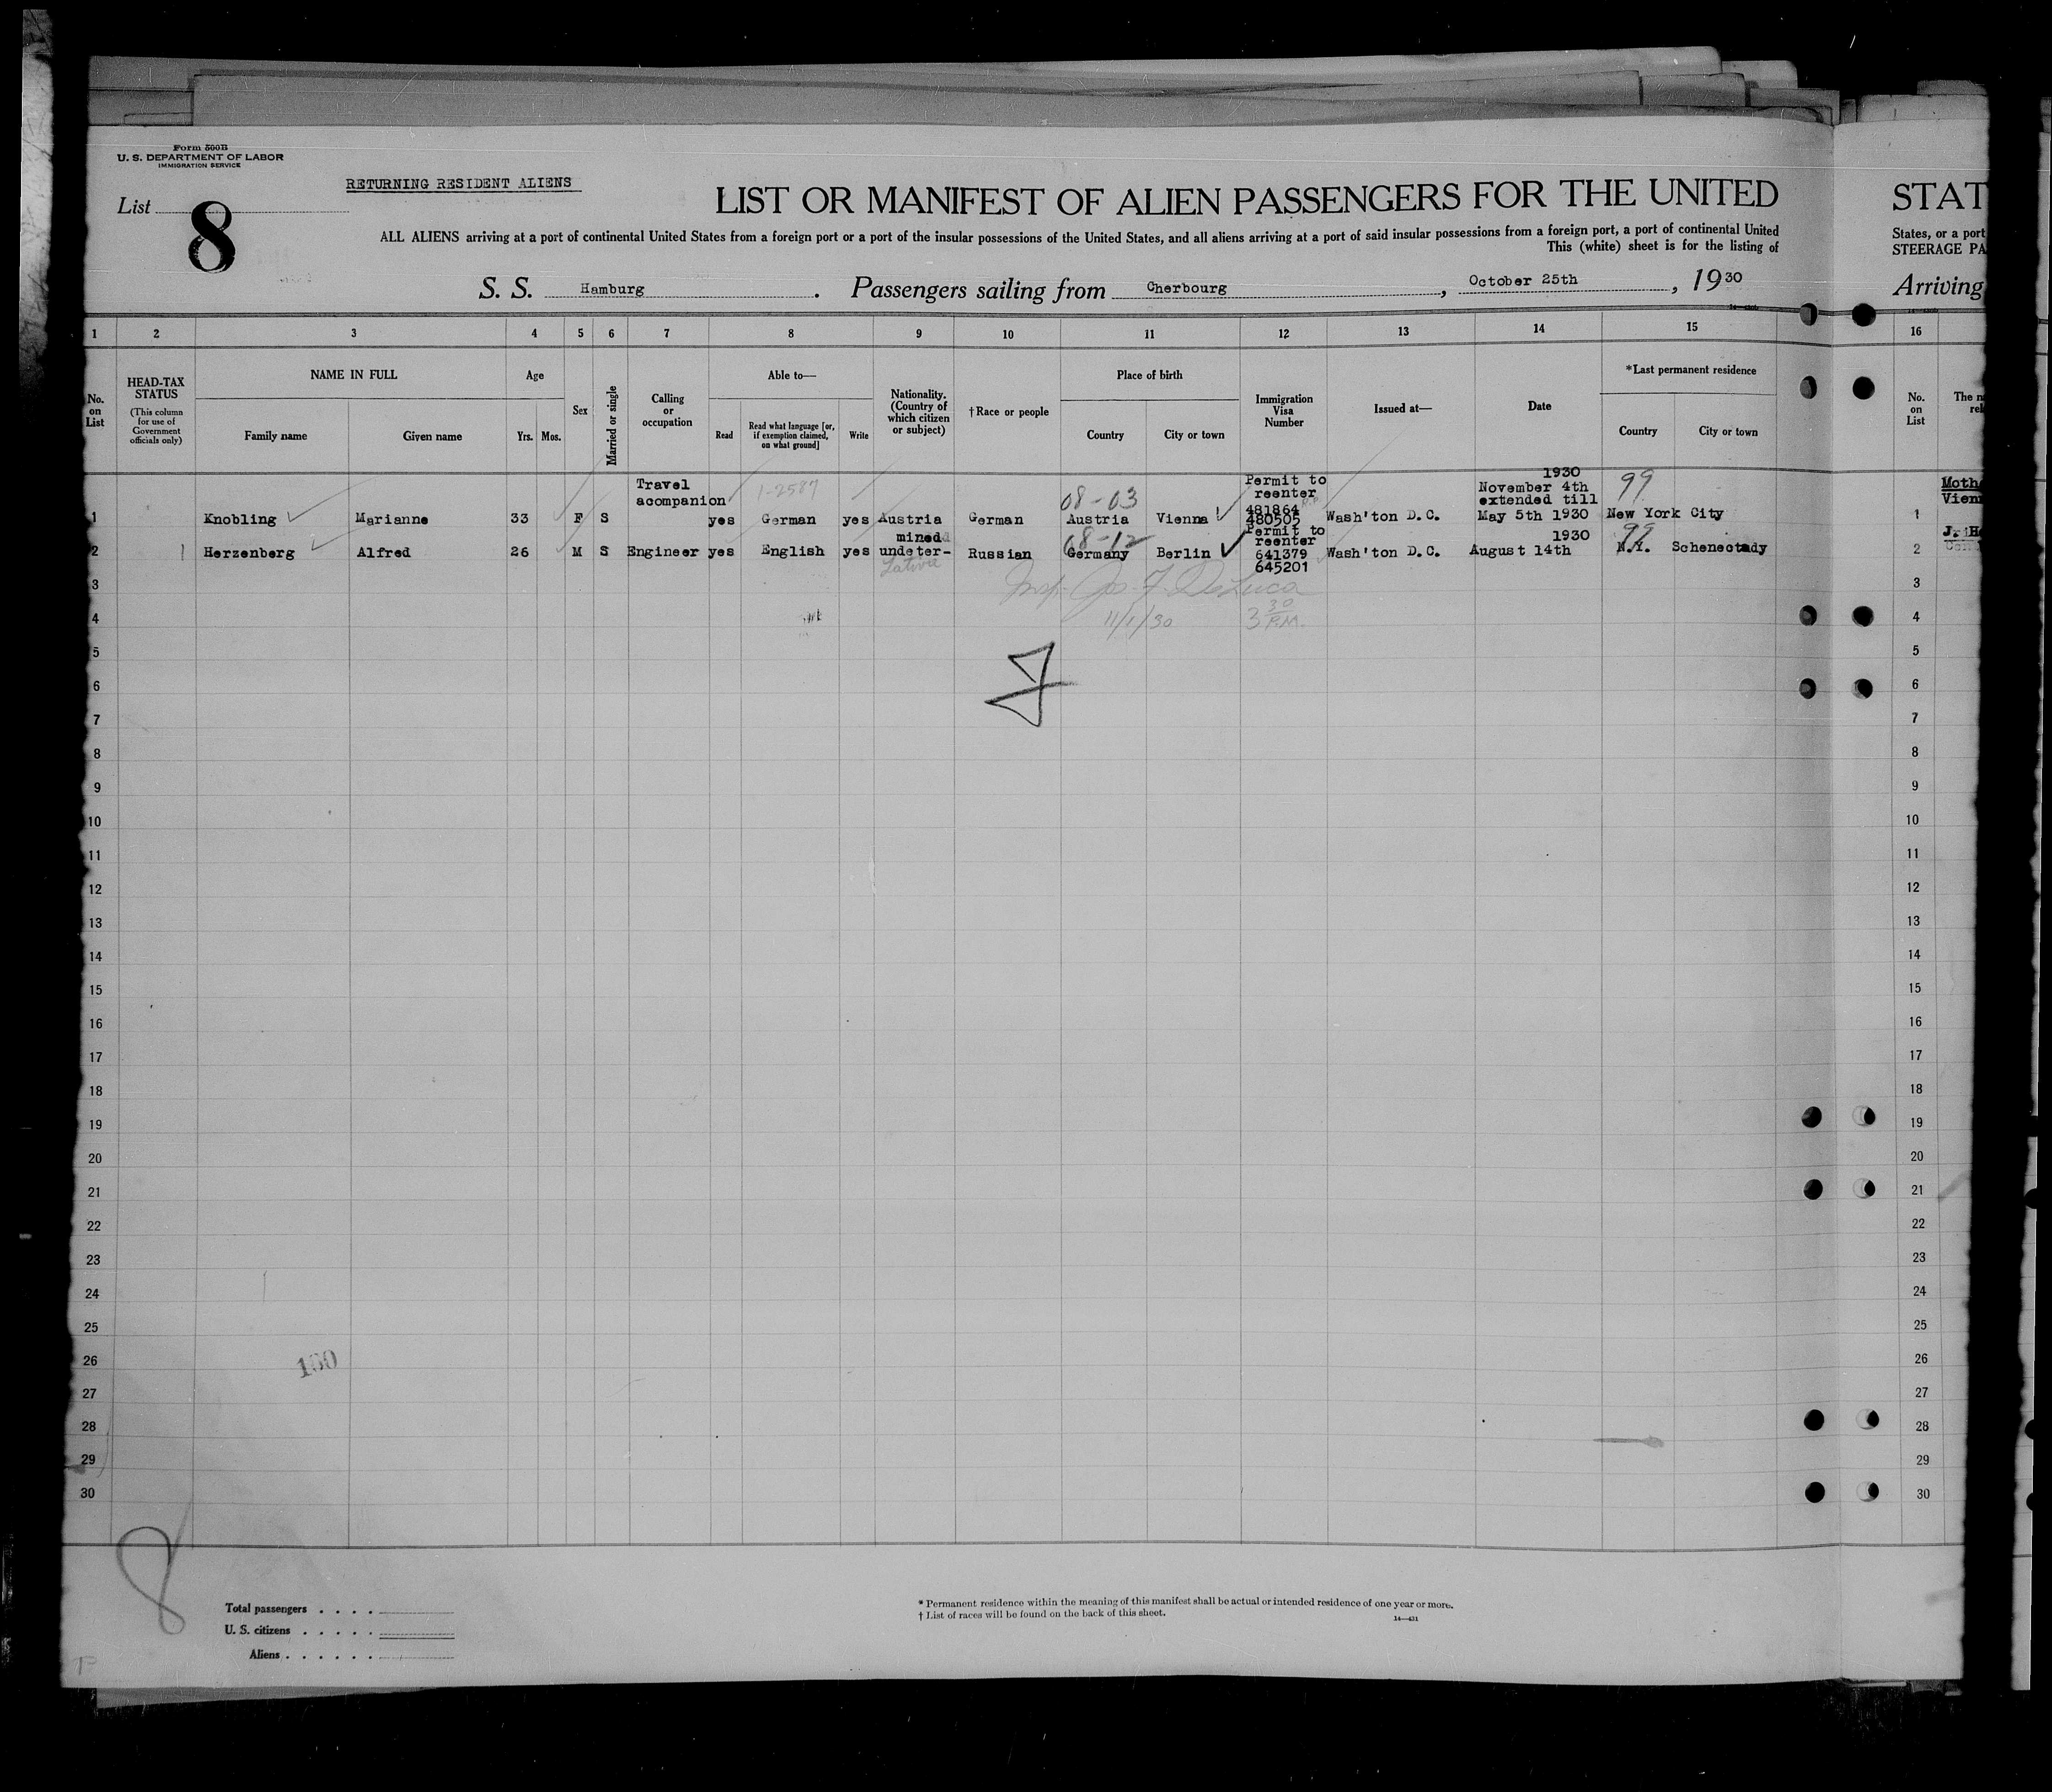 Form 500B
U. S. DEPARTMENT OF LABOR
IMMIGRATION SERVICE
RETURNING RESIDENT ALIENS
List 8
LIST OR MANIFEST OF ALIEN PASSENGERS FOR THE UNITED
STAT
ALL ALIENS arriving at a port of continental United States from a foreign port or a port of the insular possessions of the United States, and all aliens arriving at a port of said insular possessions from a foreign port, a port of continental United
States, or a port
This (white) sheet is for the listing of
STEERAGE PA
S. S. Hamburg. Passengers sailing from Cherbourg, October 25th, 1930
Arriving
1 2 3 4 5 6 7 8 9 10 11 12 13 14 15 16
No. on List
HEAD-TAX STATUS
(This column for use of Government officials only)
NAME IN FULL
Family name
Given name
Age
Yrs. Mos.
Sex
Married or single
Calling or occupation
Able to—
Read
Read what language [or, if exemption claimed, on what ground]
Write
Nationality. (Country of which citizen or subject)
†Race or people
Place of birth
Country
City or town
Immigration Visa Number
Issued at—
Date
*Last permanent residence
Country
City or town
No. on List
1 Knobling Marianne 33 F S Travel acompanion yes 1-2587 German yes Austria German 08-03 Austria Vienna Permit to reenter 481864 480505 Wash'ton D.C. 1930 November 4th extended till May 5th 1930 99 New York City 1
Vien
2 Herzenberg Alfred 26 M S Engineer yes English yes mined undeter- Russian 08-12 Germany Berlin Permit to reenter 641379 645201 Wash'ton D.C. 1930 August 14th 99 N.Y. Schenectady 2
Latvia
3 Insp. Jos. F. DeLuca 3
4 11/1/30 3 30 P.M. 4
5 5
6 6
7 7
8 8
9 9
10 10
11 11
12 12
13 13
14 14
15 15
16 16
17 17
18 18
19 19
20 20
21 21
22 22
23 23
24 24
25 25
26 100 26
27 27
28 28
29 29
30 30
8
Total passengers
U. S. citizens
Aliens
* Permanent residence within the meaning of this manifest shall be actual or intended residence of one year or more.
† List of races will be found on the back of this sheet.
14—431